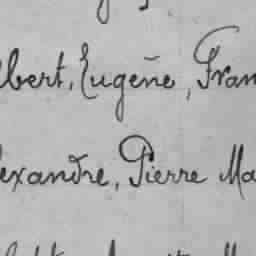 lbert, Eugène, Fran
exandre, Pierre Ma